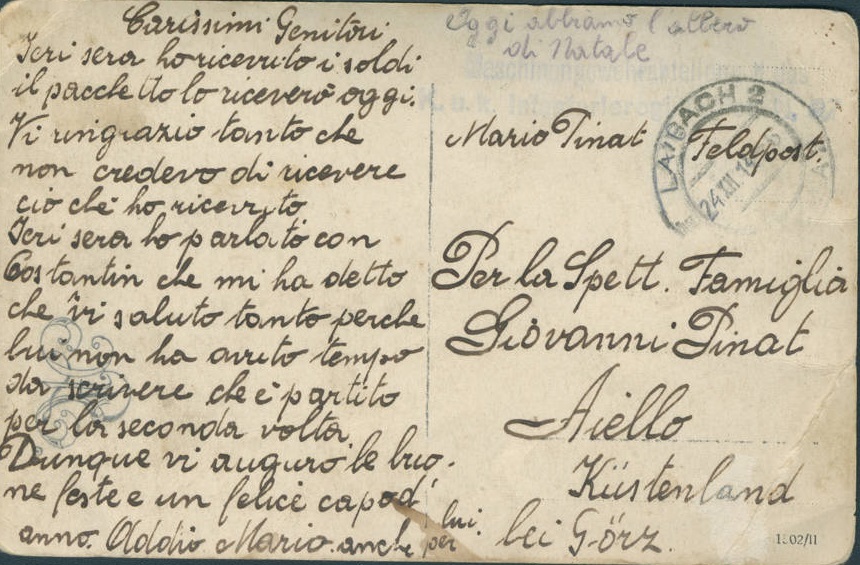 Carissimi Genitori
Ieri sera ho ricevuto i soldi
il pacchetto lo riceverò oggi.
Vi ringrazio tanto che
non credevo di ricevere
ciò che ho ricevuto
Ieri sera ho parlato con
Costantin che mi ha detto
che vi saluto tanto perche
lui non ha avuto tempo
da scrivere che è partito
per la seconda volta.
Dunque vi auguro le buo-
ne feste e un felice capod'
anno. Addio Mario. anche per lui.
Oggi abbiamo l'albero
di Natale
Maschinengewehrabteilung
K. u. k.
LAIBACH 2
24 XII 14
Mario Pinat Feldpost.
Per la Spett. Famiglia
Giovanni Pinat
Aiello
Küstenland
bei Görz.
1502/II